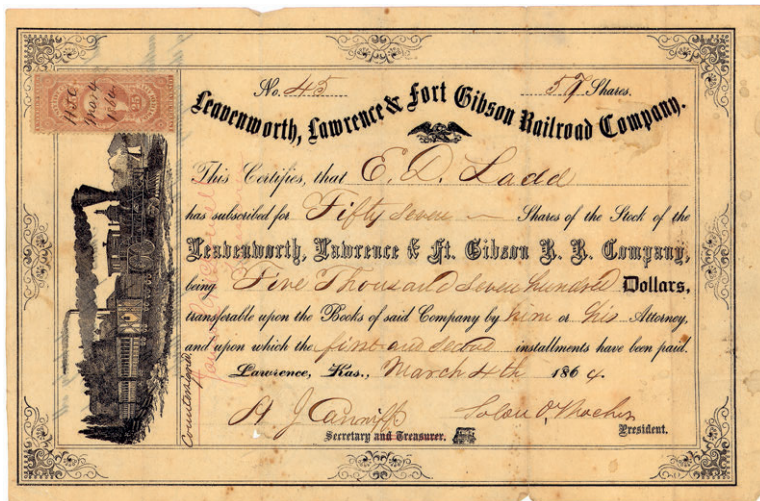 No. 45 57 Shares.
Leavenworth, Lawrence & Fort Gibson Railroad Company.
This Certifies, that E. D. Ladd
has subscribed for Fifty Seven Shares of the Stock of the
Leavenworth, Lawrence & Ft. Gibson R. R. Company,
being Five Thousand Seven hundred Dollars,
transferable upon the Books of said Company by him or his Attorney,
and upon which the first and second installments have been paid.
Lawrence, Kas., March 4th 1864.
Countersigned.
Secretary and Treasurer. President.